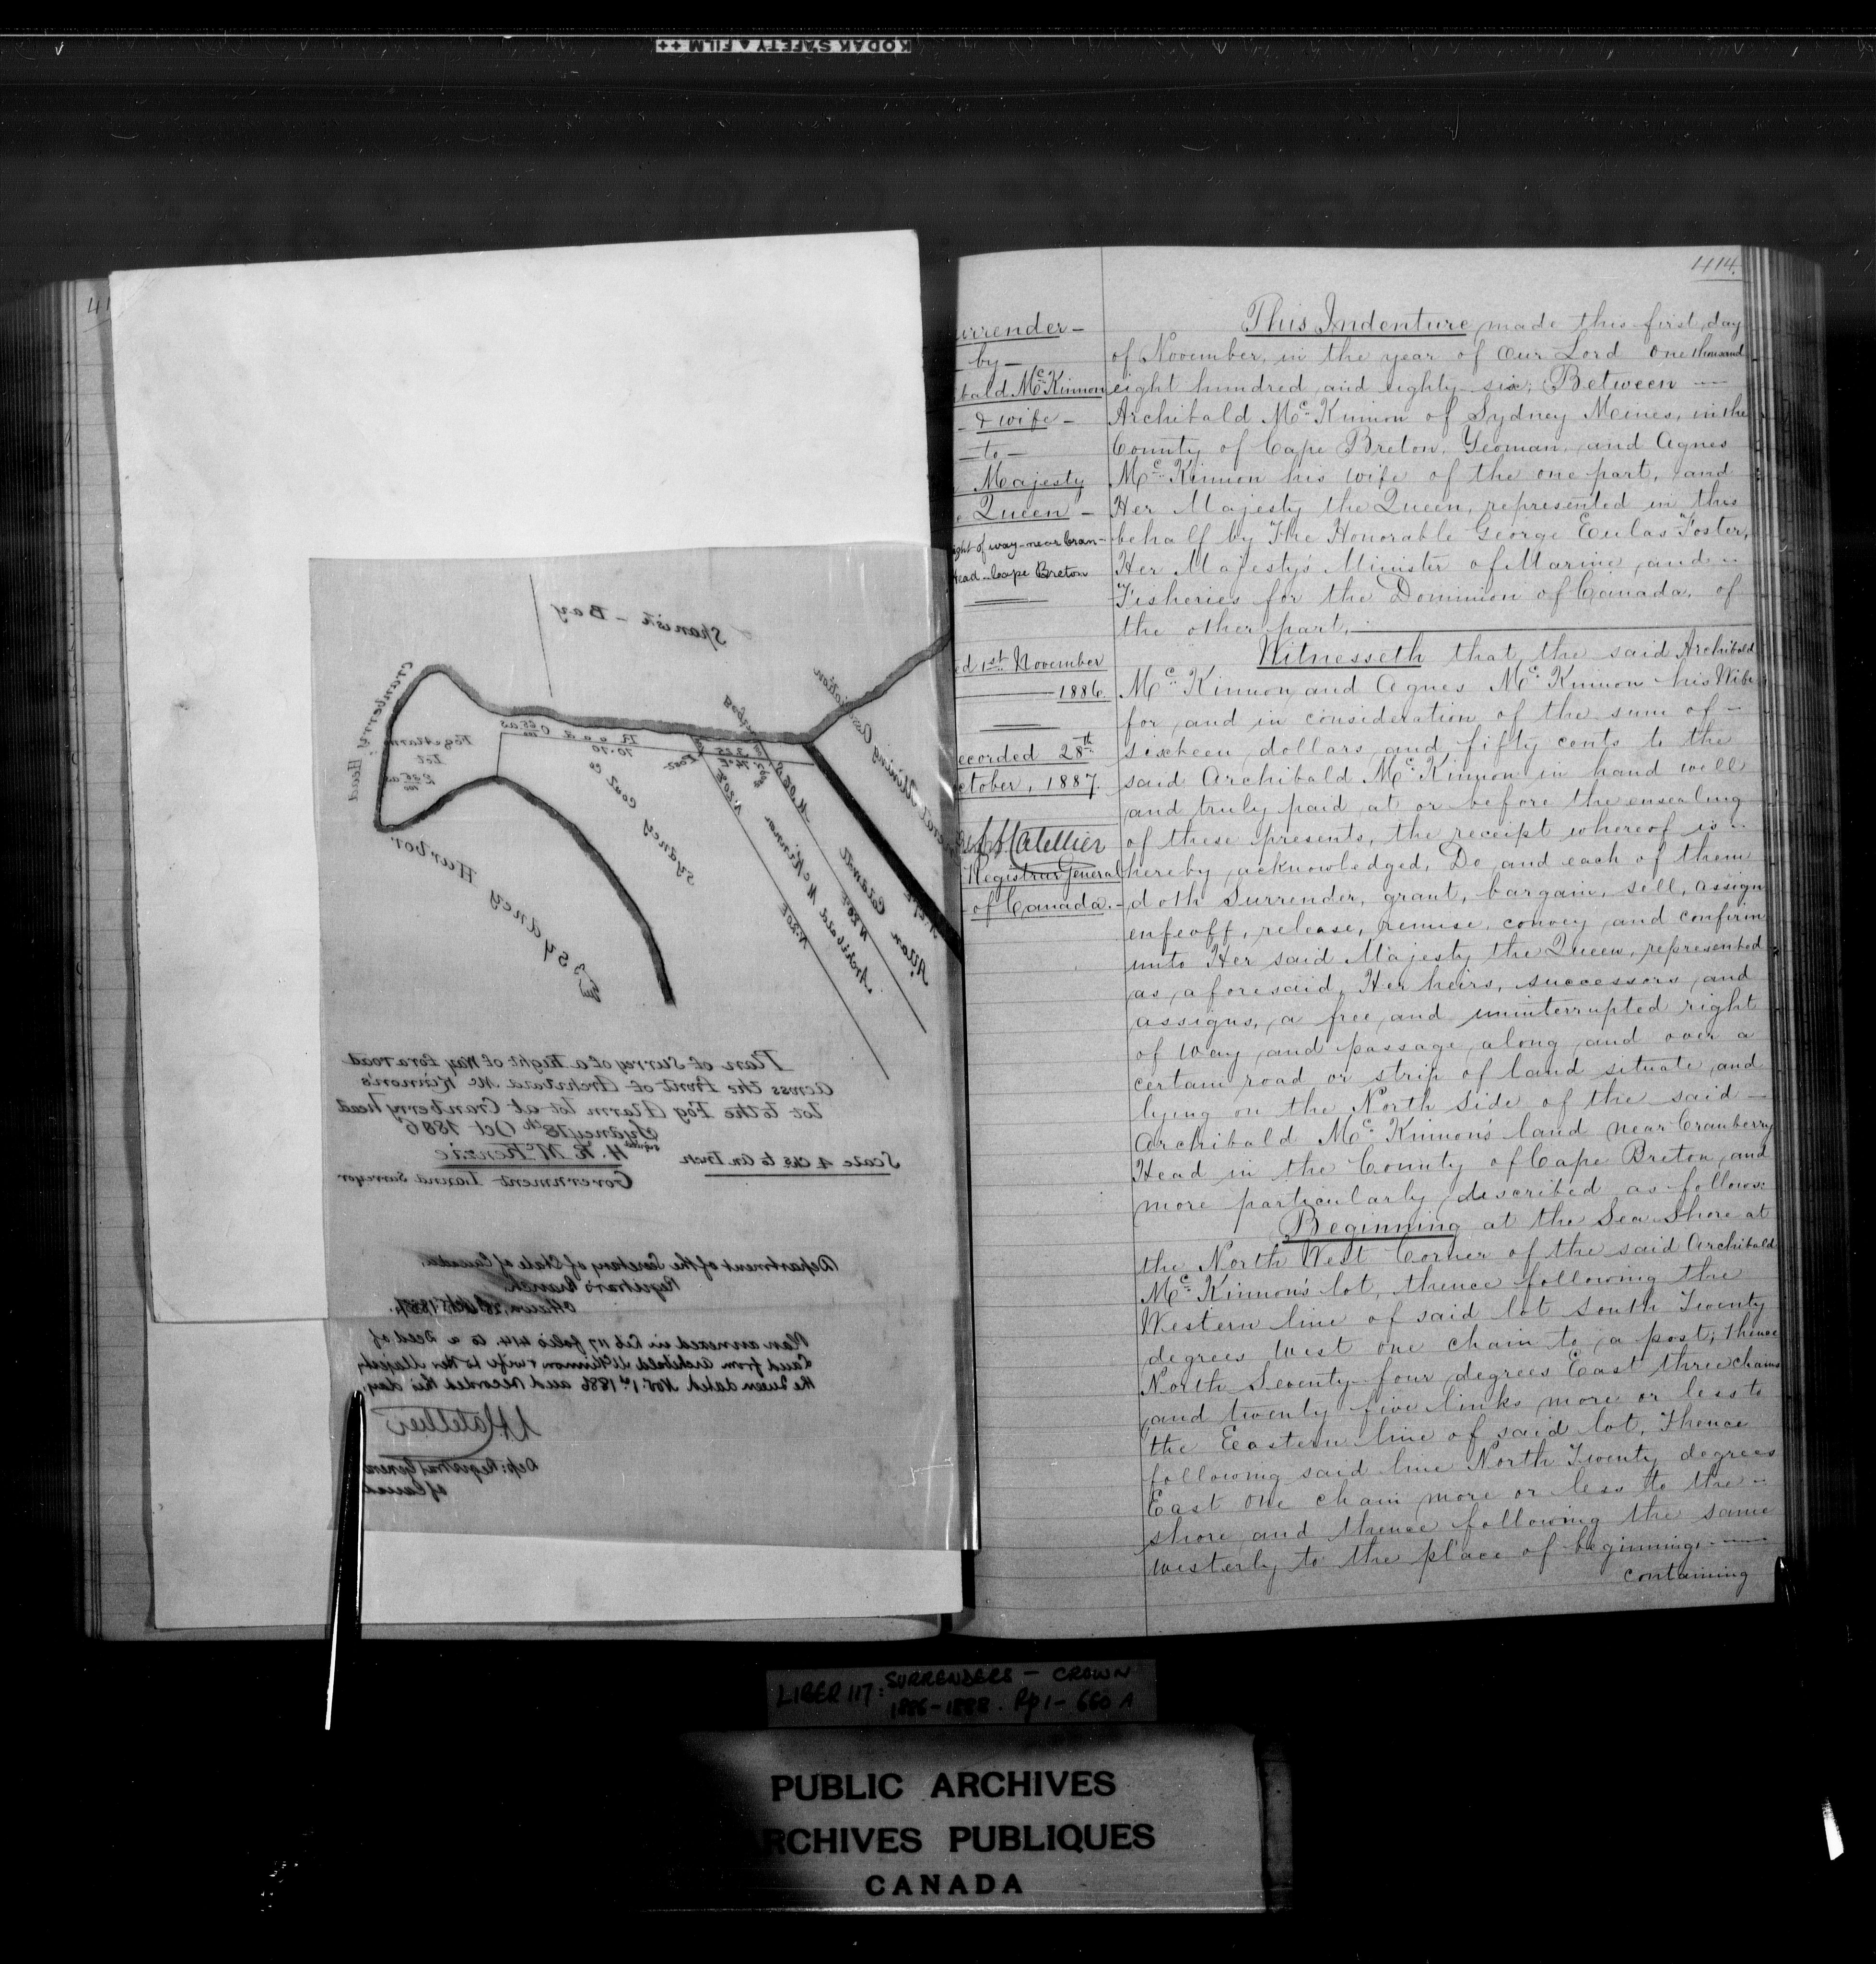 KODAK SAFETY FILM ++
41
Spanish - Bay
Cranberry Head
Fog Alarm
Lot
Road
10.10
Sydney Coal Co
Sydney Harbor
Archibald McKinnon
Allan
Mining Association
Plan of Survey of a Right of Way for a road
across the front of Archibald McKinnon's
lot to the Fog Alarm lot at Cranberry head
Sydney 18th Oct 1886
signed H. R. McKenzie
Scale 4 chs to an Inch
Government Laund Surveyor
Department of the Secretary of State of Canada.
Registrar's Branch.
Ottawa, 28th Oct. 1887.
Plan annexed in Lib 117 folio 414. to a Deed of
Land from Archibald McKinnon & wife to Her Majesty
the Queen dated Nov. 1st 1886 and recorded this day.
LA Catellier
Dep: Registrar General
of Canada
414.
urrender -
- by -
bald Mc Kinnon
- & wife -
- to -
Majesty
e Queen -
ight of way - near Cran-
Head - Cape Breton
ed 1st November
1886.
ecorded 28th
ctober, 1887.
LA Catellier
Registrar General
of Canada. -
This Indenture made this first day
of November, in the year of Our Lord One thousand
eight hundred and eighty six; Between -
Archibald Mc Kinnon of Sydney Meines, in the
County of Cape Breton, Yeoman, and Agnes
Mc Kinnon his wife of the one part, and
Her Majesty the Queen, represented in this
behalf by The Honorable George Eulas Foster,
Her Majesty's Minister of Marine and -
Fisheries for the Dominion of Canada, of
the other part,
Witnesseth that the said Archibald
Mc Kinnon and Agnes Mc Kinnon his Wife
for and in consideration of the sum of -
sixteen dollars and fifty cents to the
said Archibald Mc Kinnon in hand well
and truly paid at or before the ensealing
of these presents, the receipt whereof is -
hereby acknowledged, Do and each of them
doth Surrender, grant, bargain, sell, assign
enfeoff, release, remise, convey and confirm
unto Her said Majesty the Queen, represented
as aforesaid, Her heirs, successors and
assigns, a free and uninterrupted right
of way and passage along and over a
certain road or strip of land situate and
lying on the North Side of the said -
Archibald Mc Kinnon's land near Cranberry
Head in the County of Cape Breton and
more particularly described as follows:
Beginning at the Sea Shore at
the North West Corner of the said Archibald
Mc Kinnon's lot, thence following the
Western line of said lot South Twenty
degrees West one chain to a post; thence
North Seventy-four degrees East three chains
and twenty five links more or less to
the Eastern line of said lot, Thence
following said line North Twenty degrees
East One chain more or less to the -
shore and thence following the same
westerly to the place of beginning -
containing
LIBER 117: SURRENDERS - CROWN
1886-1888. Pp 1-660 A
PUBLIC ARCHIVES
ARCHIVES PUBLIQUES
CANADA